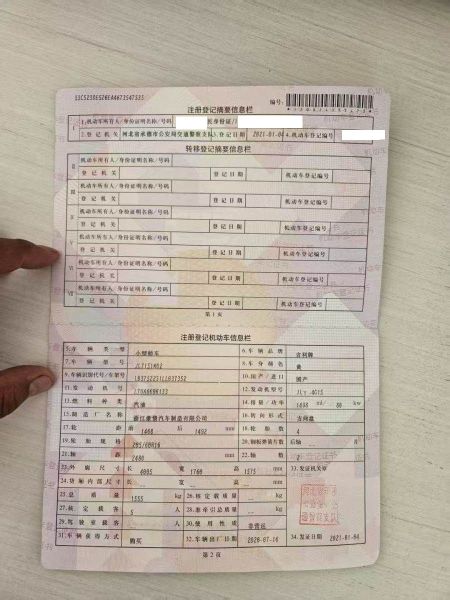 编号:
注册登记摘要信息栏
I 1.机动车所有人/身份证明名称/号码 居民身份证/
2.登记机关 河北省承德市公安局交通警察支队 3.登记日期 2021-01-04 4.机动车登记编号
转移登记摘要信息栏
机动车所有人/身份证明名称/号码
登记机关 登记日期 机动车登记编号
机动车所有人/身份证明名称/号码
登记机关 登记日期 机动车登记编号
机动车所有人/身份证明名称/号码
登记机关 登记日期 机动车登记编号
V 机动车所有人/身份证明名称/号码
登记机关 登记日期 机动车登记编号
VI 机动车所有人/身份证明名称/号码
登记机关 登记日期 机动车登记编号
VII 机动车所有人/身份证明名称/号码
登记机关 登记日期 机动车登记编号
第 1 页
注册登记机动车信息栏
5.车辆类型 小型轿车 6.车辆品牌 吉利牌
7.车辆型号 8.车身颜色 黄
9.车辆识别代号/车架号 10.国产/进口 国产
11.发动机号 12.发动机型号 JLY-4G15
13.燃料种类 汽油 14.排量/功率 1498 ml/ 80 kw
15.制造厂名称 浙江豪情汽车制造有限公司 16.转向形式 方向盘
17.轮距 前 1460 后 1492 mm 18.轮胎数 4
19.轮胎规格 205/60R16 20.钢板弹簧片数 后轴 --
21.轴距 2480 mm 22.轴数 2
23.外廓尺寸 长 4005 宽 1760 高 1575 mm 33.发证机关章
24.货厢内部尺寸 长 -- 宽 -- 高 -- mm
25.总质量 1555 kg 26.核定载质量 -- kg
27.核定载客 5 人 28.准牵引总质量 -- kg
29.驾驶室载客 -- 人 30.使用性质 非营运
31.车辆获得方式 购买 32.车辆出厂日期 2020-07-16 34.发证日期 2021-01-04
第 2 页